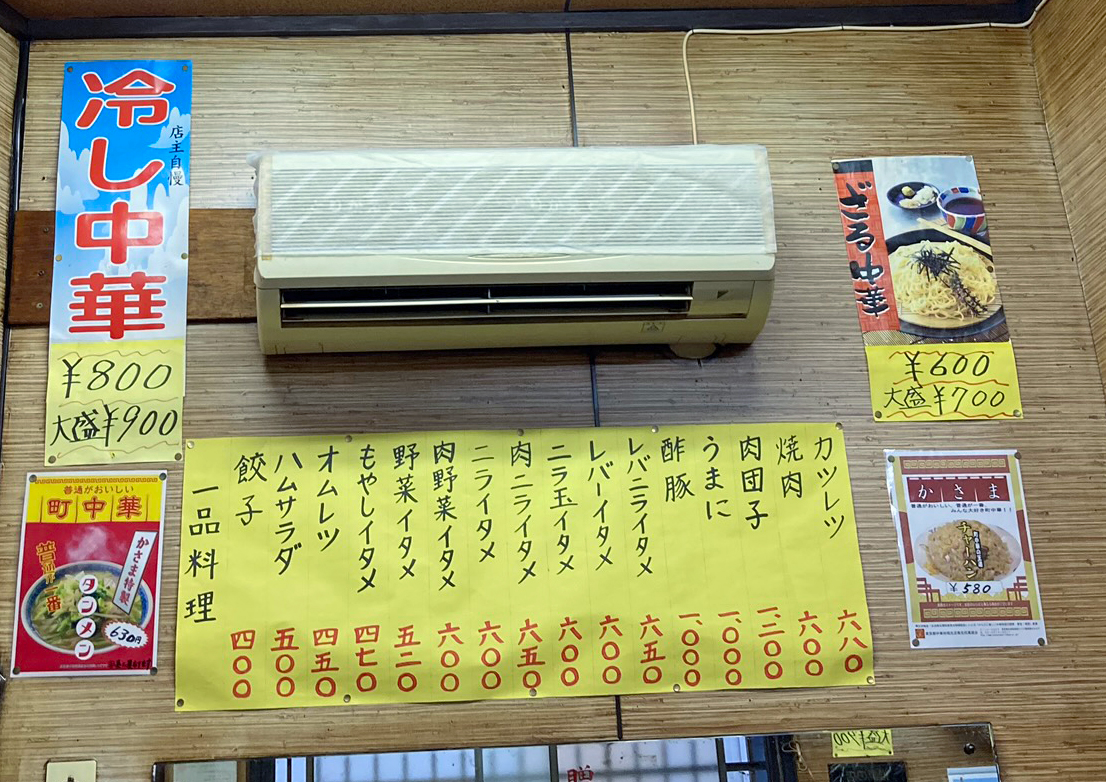 冷し中華
店主自慢
¥800
大盛¥900
ざる中華
¥600
大盛¥700
一品料理
餃子 四〇〇
ハムサラダ 五〇〇
オムレツ 四五〇
もやしイタメ 四七〇
野菜イタメ 五二〇
肉野菜イタメ 六〇〇
ニライタメ 六〇〇
肉ニライタメ 六五〇
ニラ玉イタメ 六〇〇
レバーイタメ 六〇〇
レバニライタメ 六五〇
酢豚 一〇〇〇
うまに 一〇〇〇
肉団子 一二〇〇
焼肉 六〇〇
カツレツ 六八〇
普通がおいしい
町中華
普通が一番
かさま特製
タンメン
630円
かさま
普通がおいしい、普通が一番、
みんな大好き町中華!!
チャーハン
¥580